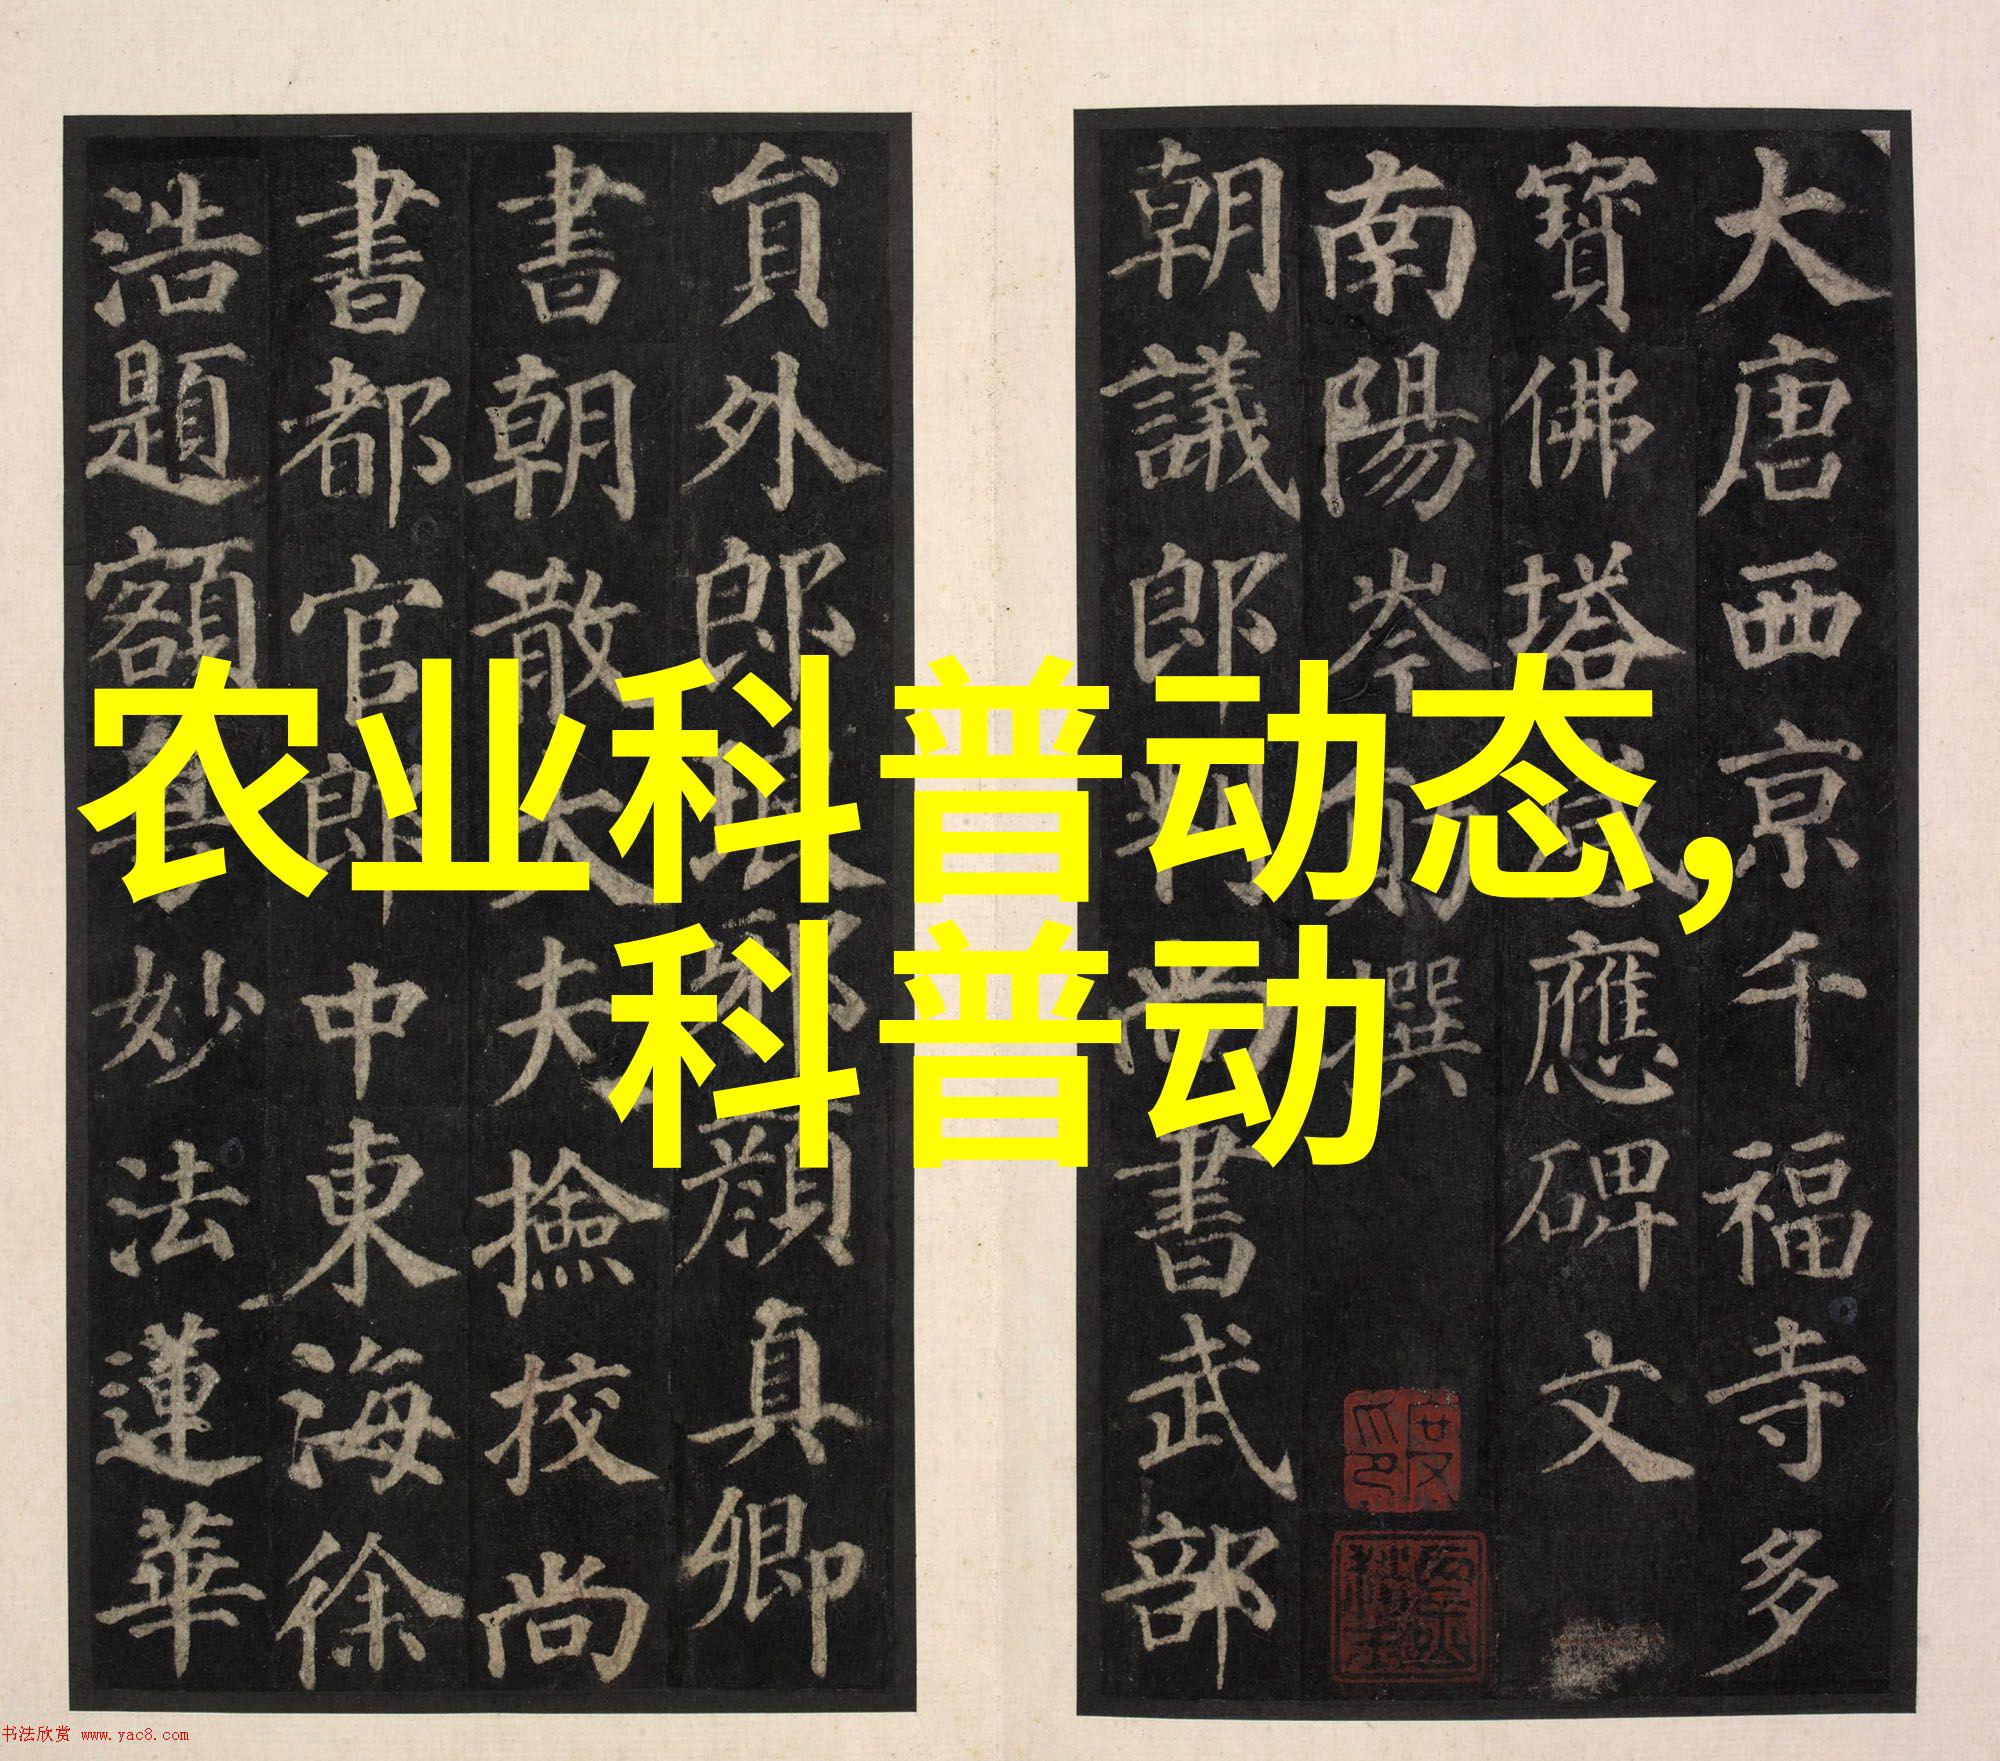 农业科普动态,
科普动
大唐西京千福寺多
寶佛塔感應碑文
南陽岑勛撰
朝議郎判尚書武部
貟外郎琅邪顏真卿
書朝散大夫撿挍尚
書都官郎中東海徐
浩題額粵妙法蓮華
书法欣赏 www.yac8.com